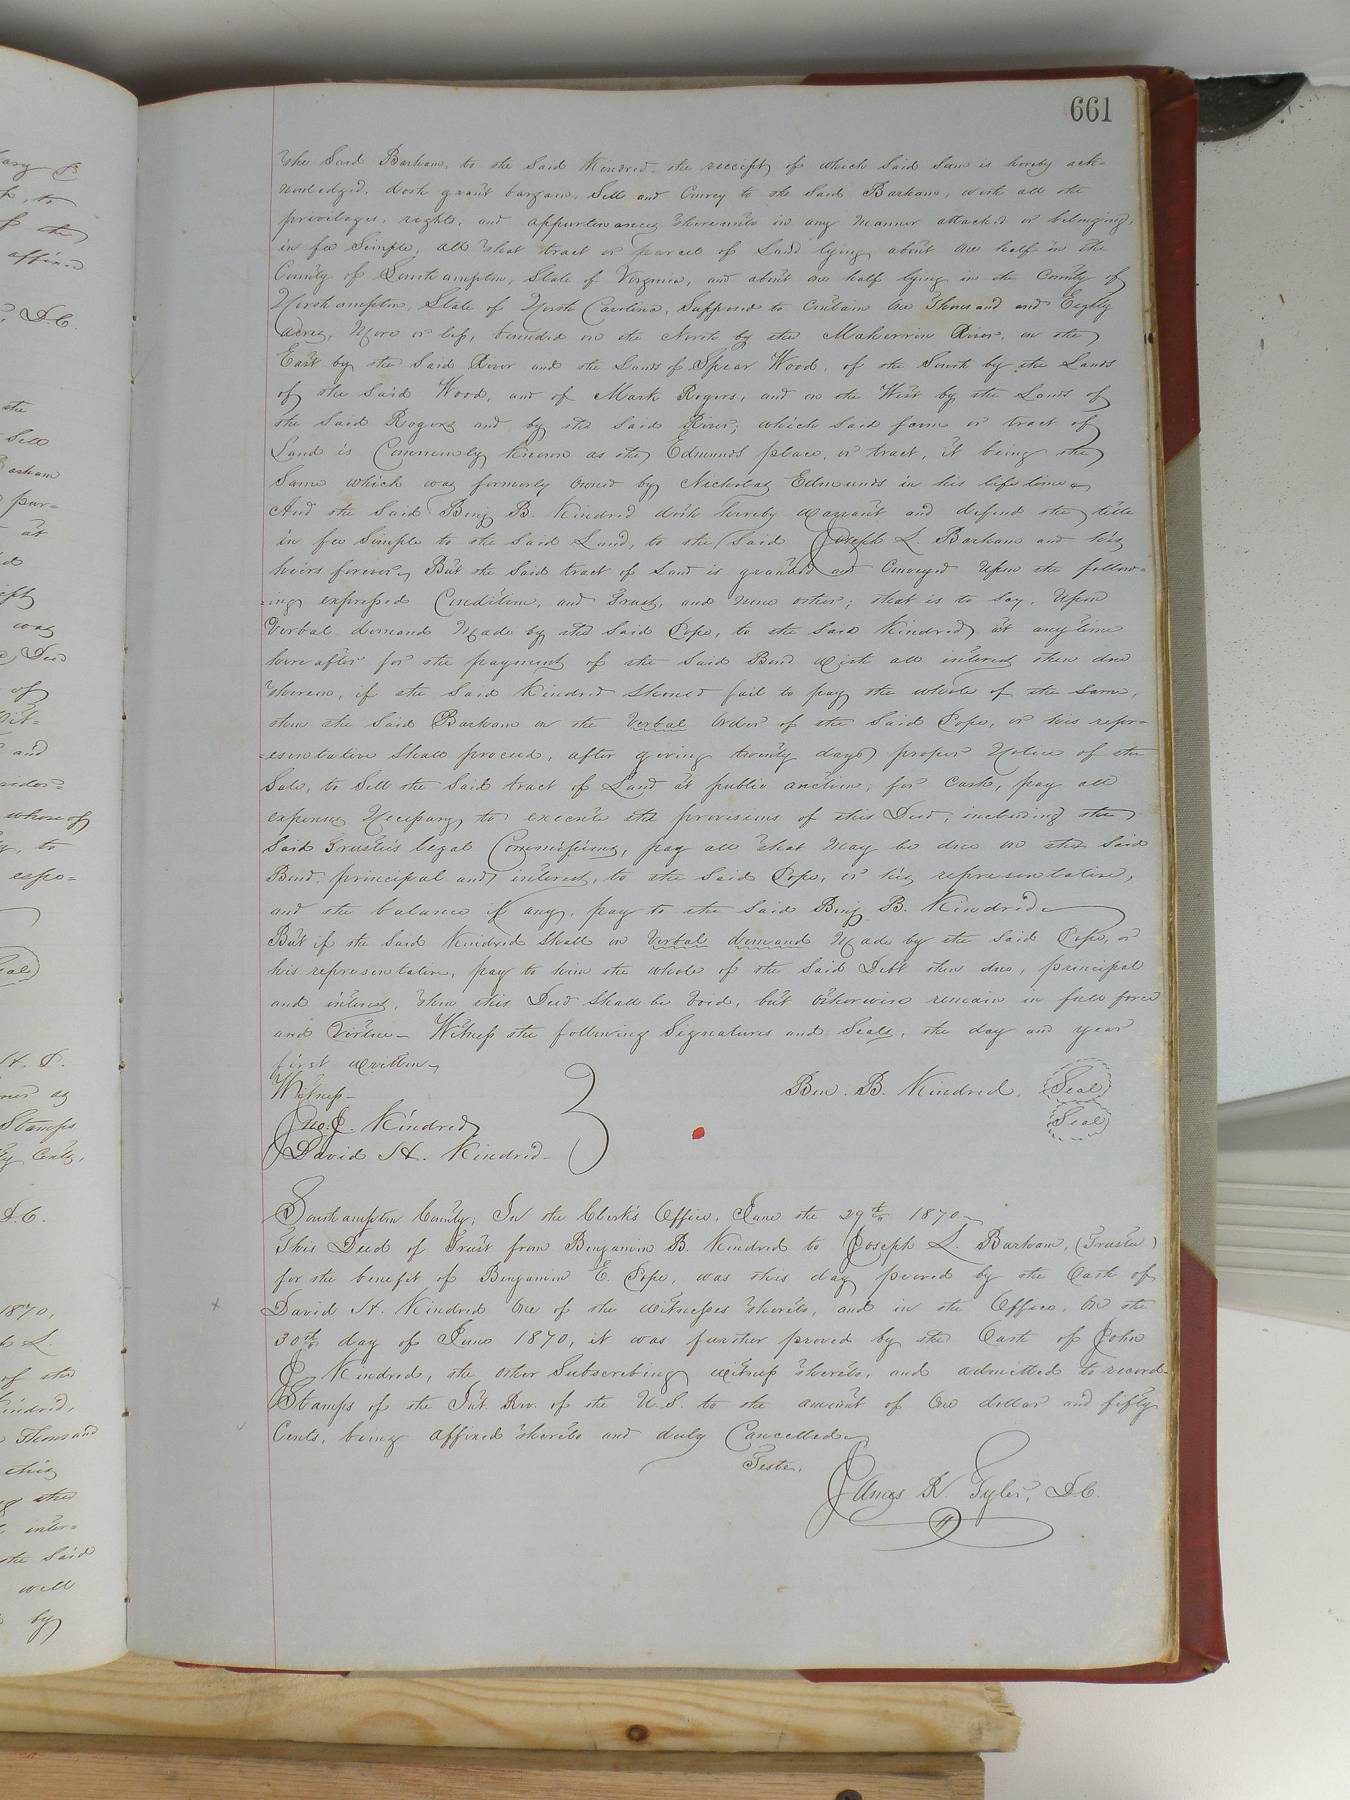 661
the Said Barham, to the Said Kindred, the receipt of which Said Sum is hereby ack=
nowledged, doth grant bargain, Sell and Convey to the Said Barham, with all the
privileges, rights, and appurtenances thereunto in any Manner attached or belonging,
in fee Simple, all that tract or parcel of Land lying about one half in the
County of Southampton, State of Virginia, and about one half lying in the County of
Northampton, State of North Carolina, Supposed to Contain One Thousand and Eighty
acres, More or less, bounded on the North by the Maherrin River, on the
East by the Said River and the Lands of Spear Wood, of the South by the Lands
of the Said Wood, and of Mark Rogers, and on the West by the Lands of
the Said Rogers and by the Said River; which Said farm or tract of
Land is Commonly known as the Edmunds place, or tract, it being the
Same which was formerly Owned by Nicholas Edmunds in his life time
And the Said Benj B. Kindred doth hereby warrant and defend the title
in fee Simple to the Said Land, to the Said Joseph L. Barham and his
heirs forever, But the Said tract of Land is granted and Conveyed Upon the follow=
=ing expressed Condition, and Trust, and none other; that is to Say, Upon
Verbal demand Made by the Said Pope, to the Said Kindred at any time
hereafter for the payment of the Said Bond with all interest then due
thereon, if the Said Kindred Should fail to pay the whole of the Same,
then the Said Barham on the Verbal Order of the Said Pope, or his repr=
=esentative Shall proceed, after giving twenty days proper Notice of the
Sale, to Sell the Said tract of Land at public auction, for Cash, pay all
expenses Necessary to execute the provisions of this Deed, including the
Said Trustees legal Commissions, pay all that May be due on the Said
Bond principal and interest, to the Said Pope, or his representative,
and the balance if any, pay to the Said Benj B. Kindred
But if the Said Kindred Shall on Verbal demand Made by the Said Pope, or
his representative, pay to him the whole of the Said Debt then due, principal
and interest, then this Deed Shall be Void, but Otherwise remain in full force
and Virtue— Witness the following Signatures and Seals, the day and year
first written
Witness— Ben. B. Kindred. Seal
Jno. J. Kindred Seal
David H. Kindred—
Southampton County, In the Clerk's Office, June the 29th 1870—
This Deed of Trust from Benjamin B. Kindred to Joseph L. Barham, (Trustee)
for the benefit of Benjamin E. Pope, was this day proved by the Oath of
David H. Kindred One of the witnesses thereto, and in the Office, On the
30th day of June 1870, it was further proved by the Oath of John
J. Kindred, the other Subscribing witness thereto, and admitted to record—
Stamps of the Int. Rev. of the U.S. to the amount of One dollar and fifty
Cents, being affixed thereto and duly Cancelled
Teste,
James R Tyler, D.C.